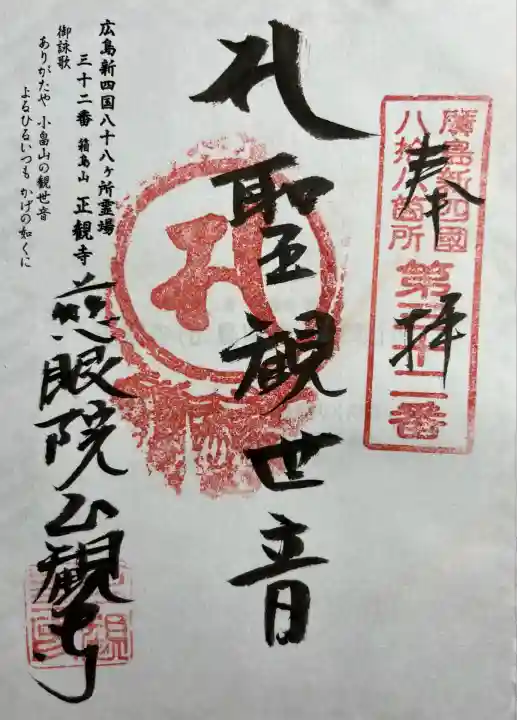 廣島新四國
八拾八箇所
第三十二番
奉拝
聖観世音
慈眼院正観寺
広島新四国八十八ヶ所霊場
三十二番 箱島山 正観寺
御詠歌
ありがたや 小畠山の観世音
よるひるいつも かげの如くに